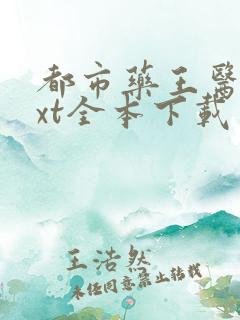 都市藥王醫
xt全本下載
王浩然
未经同意禁止转载